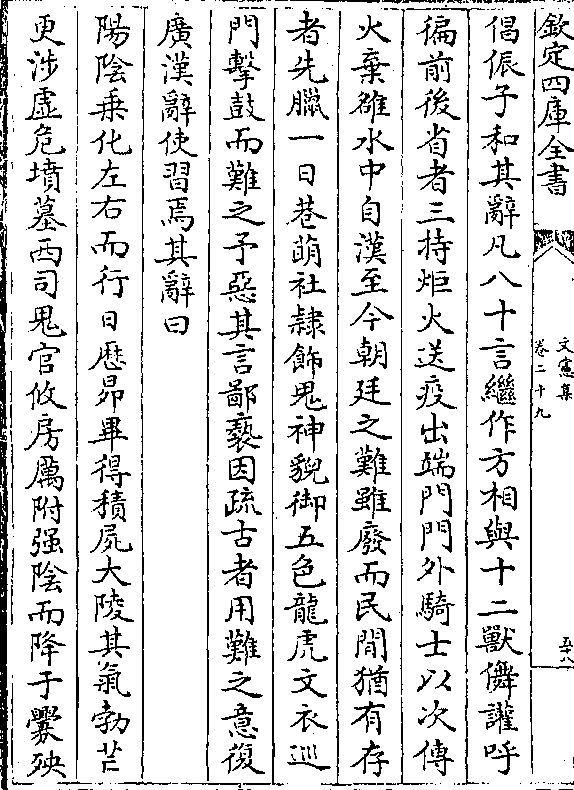 欽定四庫全書
文憲集
卷二十九
五十八
倡侲子和其辭凡八十言繼作方相與十二獸儛讙呼
徧前後省者三持炬火送疫出端門門外騎士以次傳
火棄雒水中自漢至今朝廷之難雖廢而民間猶有存
者先臘一日巷萌社隸飾鬼神貌御五色龍虎文衣巡
門擊鼓而難之予惡其言鄙褻因疏古者用難之意復
廣漢辭使習焉其辭曰
陽陰乗化左右而行日厯昴畢得積屍大陵其氣勃芒
更涉虛危墳墓西司鬼官攸房厲附强陰而降于爨殃